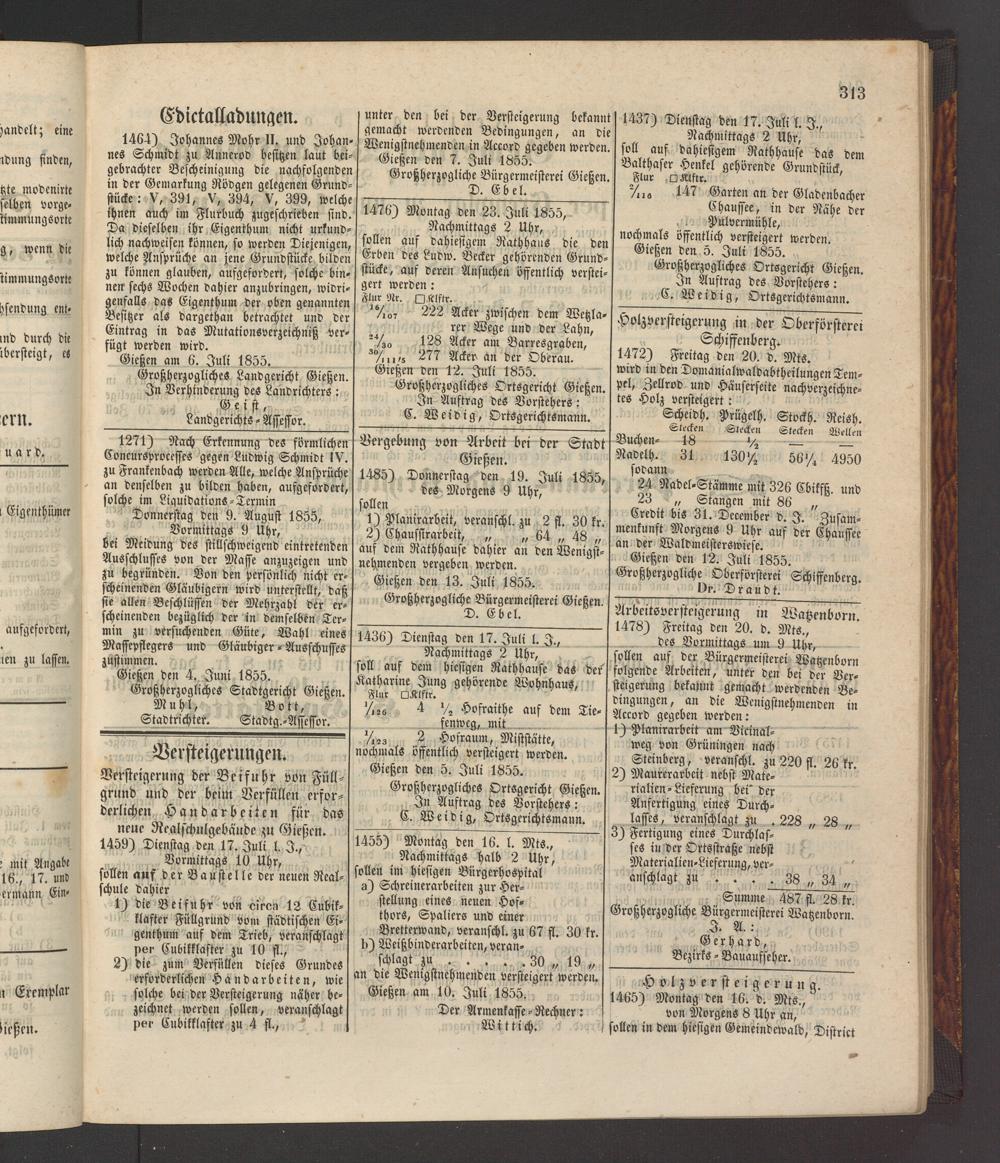 313
handelt; eine
ndung finden,
zte modenirte
selben vorge-
stimmungsorte
g, wenn die
stimmungsorte
hsendung ent-
und durch die
übersteigt, es
ern.
uard.
n Eigenthümer
aufgefordert,
ien zu lassen.
e mit Angabe
16., 17. und
ermann Ein-
n Exemplar
Gießen.
Edictalladungen.
1464) Johannes Mohr II. und Johan-
nes Schmidt zu Annerod besitzen laut bei-
gebrachter Bescheinigung die nachfolgenden
in der Gemarkung Rödgen gelegenen Grund-
stücke: V, 391, V, 394, V, 399, welche
ihnen auch im Flurbuch zugeschrieben sind.
Da dieselben ihr Eigenthum nicht urkund-
lich nachweisen können, so werden Diejenigen,
welche Ansprüche an jene Grundstücke bilden
zu können glauben, aufgefordert, solche bin-
nen sechs Wochen dahier anzubringen, widri-
genfalls das Eigenthum der oben genannten
Besitzer als dargethan betrachtet und der
Eintrag in das Mutationsverzeichniß ver-
fügt werden wird.
Gießen am 6. Juli 1855.
Großherzogliches Landgericht Gießen.
In Verhinderung des Landrichters:
Geist,
Landgerichts-Assessor.
1271) Nach Erkennung des förmlichen
Concursprocesses gegen Ludwig Schmidt IV.
zu Frankenbach werden Alle, welche Ansprüche
an denselben zu bilden haben, aufgefordert,
solche im Liquidations-Termin
Donnerstag den 9. August 1855,
Vormittags 9 Uhr,
bei Meidung des stillschweigend eintretenden
Ausschlusses von der Masse anzuzeigen und
zu begründen. Von den persönlich nicht er-
scheinenden Gläubigern wird unterstellt, daß
sie allen Beschlüssen der Mehrzahl der er-
scheinenden bezüglich der in demselben Ter-
min zu versuchenden Güte, Wahl eines
Massepflegers und Gläubiger-Ausschusses
zustimmen.
Gießen den 4. Juni 1855.
Großherzogliches Stadtgericht Gießen.
Muhl, Bott,
Stadtrichter. Stadtg.-Assessor.
Versteigerungen.
Versteigerung der Beifuhr von Füll-
grund und der beim Verfüllen erfor-
derlichen Handarbeiten für das
neue Realschulgebäude zu Gießen.
1459) Dienstag den 17. Juli l. J.,
Vormittags 10 Uhr,
sollen auf der Baustelle der neuen Real-
schule dahier
1) die Beifuhr von circa 12 Cubik-
klafter Füllgrund vom städtischen Ei-
genthum auf dem Trieb, veranschlagt
per Cubikklafter zu 10 fl.,
2) die zum Verfüllen dieses Grundes
erforderlichen Handarbeiten, wie
solche bei der Versteigerung näher be-
zeichnet werden sollen, veranschlagt
per Cubikklafter zu 4 fl.,
unter den bei der Versteigerung bekannt
gemacht werdenden Bedingungen, an die
Wenigstnehmenden in Accord gegeben werden.
Gießen den 7. Juli 1855.
Großherzogliche Bürgermeisterei Gießen.
D. Ebel.
1476) Montag den 23. Juli 1855,
Nachmittags 2 Uhr,
sollen auf dahiesigem Rathhaus die den
Erben des Ludw. Becker gehörenden Grund-
stücke, auf deren Ansuchen öffentlich verstei-
gert werden:
Flur Nr. □Klftr.
16/107 222 Acker zwischen dem Wetzla-
rer Wege und der Lahn,
24/30 128 Acker am Barresgraben,
30/111/5 277 Acker an der Oberau.
Gießen den 12. Juli 1855.
Großherzogliches Ortsgericht Gießen.
In Auftrag des Vorstehers:
C. Weidig, Ortsgerichtsmann.
Vergebung von Arbeit bei der Stadt
Gießen.
1485) Donnerstag den 19. Juli 1855,
des Morgens 9 Uhr,
sollen
1) Planirarbeit, veranschl. zu 2 fl. 30 kr.
2) Chaussirarbeit, „ „ 64 „ 48 „
auf dem Rathhause dahier an den Wenigst-
nehmenden vergeben werden.
Gießen den 13. Juli 1855.
Großherzogliche Bürgermeisterei Gießen.
D. Ebel.
1436) Dienstag den 17. Juli l. J.,
Nachmittags 2 Uhr,
soll auf dem hiesigen Rathhause das der
Katharine Jung gehörende Wohnhaus,
Flur □Klftr.
1/126 4 ½ Hofraithe auf dem Tie-
fenweg, mit
1/123 2 Hofraum, Miststätte,
nochmals öffentlich versteigert werden.
Gießen den 5. Juli 1855.
Großherzogliches Ortsgericht Gießen.
In Auftrag des Vorstehers:
C. Weidig, Ortsgerichtsmann.
1455) Montag den 16. l. Mts.,
Nachmittags halb 2 Uhr,
sollen im hiesigen Bürgerhospital
a) Schreinerarbeiten zur Her-
stellung eines neuen Hof-
thors, Spaliers und einer
Bretterwand, veranschl. zu 67 fl. 30 kr.
b) Weißbinderarbeiten, veran-
schlagt zu . . . . . 30 „ 19 „
an die Wenigstnehmenden versteigert werden.
Gießen am 10. Juli 1855.
Der Armenkasse-Rechner:
Wittich.
1437) Dienstag den 17. Juli l. J.,
Nachmittags 2 Uhr,
soll auf dahiesigem Rathhause das dem
Balthaser Henkel gehörende Grundstück,
Flur □Klftr.
2/116 147 Garten an der Gladenbacher
Chaussee, in der Nähe der
Pulvermühle,
nochmals öffentlich versteigert werden.
Gießen den 5. Juli 1855.
Großherzogliches Ortsgericht Gießen.
In Auftrag des Vorstehers:
C. Weidig, Ortsgerichtsmann.
Holzversteigerung in der Oberförsterei
Schiffenberg.
1472) Freitag den 20. d. Mts.
wird in den Domanialwaldabtheilungen Tem-
pel, Zellrod und Häuserseite nachverzeichne-
tes Holz versteigert:
Scheidh. Prügelh. Stockh. Reish.
Stecken Stecken Stecken Wellen
Buchen- 18 ½ — —
Nadelh. 31 130½ 56¼ 4950
sodann
24 Nadel-Stämme mit 326 Cbikfß. und
23 „ Stangen mit 86 „
Credit bis 31. December d. J. Zusam-
menkunft Morgens 9 Uhr auf der Chaussee
an der Waldmeisterswiese.
Gießen den 12. Juli 1855.
Großherzogliche Oberförsterei Schiffenberg.
Dr. Draudt.
Arbeitsversteigerung in Watzenborn.
1478) Freitag den 20. d. Mts.,
des Vormittags um 9 Uhr,
sollen auf der Bürgermeisterei Watzenborn
folgende Arbeiten, unter den bei der Ver-
steigerung bekannt gemacht werdenden Be-
dingungen, an die Wenigstnehmenden in
Accord gegeben werden:
1) Planirarbeit am Vicinal-
weg von Grüningen nach
Steinberg, veranschl. zu 220 fl. 26 kr.
2) Maurerarbeit nebst Mate-
rialien-Lieferung bei der
Anfertigung eines Durch-
lasses, veranschlagt zu . 228 „ 28 „
3) Fertigung eines Durchlas-
ses in der Ortsstraße nebst
Materialien-Lieferung, ver-
anschlagt zu . . . . 38 „ 34 „
Summe 487 fl. 28 kr.
Großherzogliche Bürgermeisterei Watzenborn.
J. A.:
Gerhard,
Bezirks-Bauaufseher.
Holzversteigerung.
1465) Montag den 16. d. Mts.,
von Morgens 8 Uhr an,
sollen in dem hiesigen Gemeindewald, District